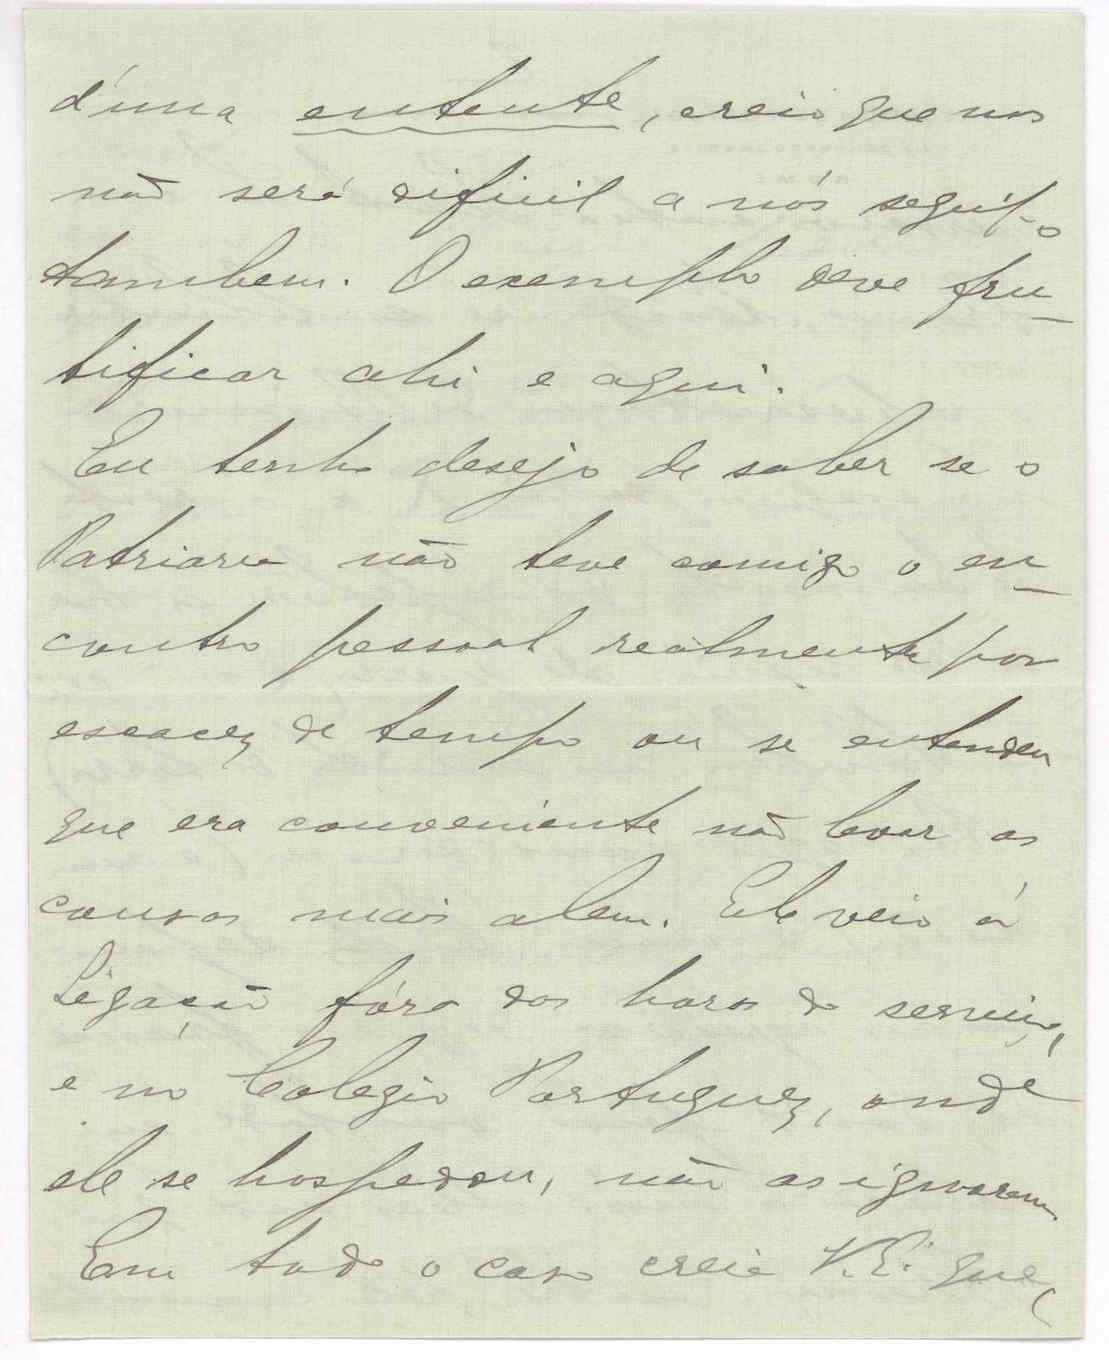 d'uma entente, creio que nos
não será dificil a nós seguil-o
tambem. O exemplo deve fru-
tificar ahi e aqui.
Eu tenho desejo de saber se o
Patriarca não teve comigo o en-
contro pessoal realmente por
escacez de tempo ou se entendeu
que era conveniente não levar as
cousas mais alem. Ele veio á
Legação fóra das horas de serviço,
e no Colegio Portuguez, onde
ele se hospedou, não as ignoram.
Em todo o caso creia V. E. que,